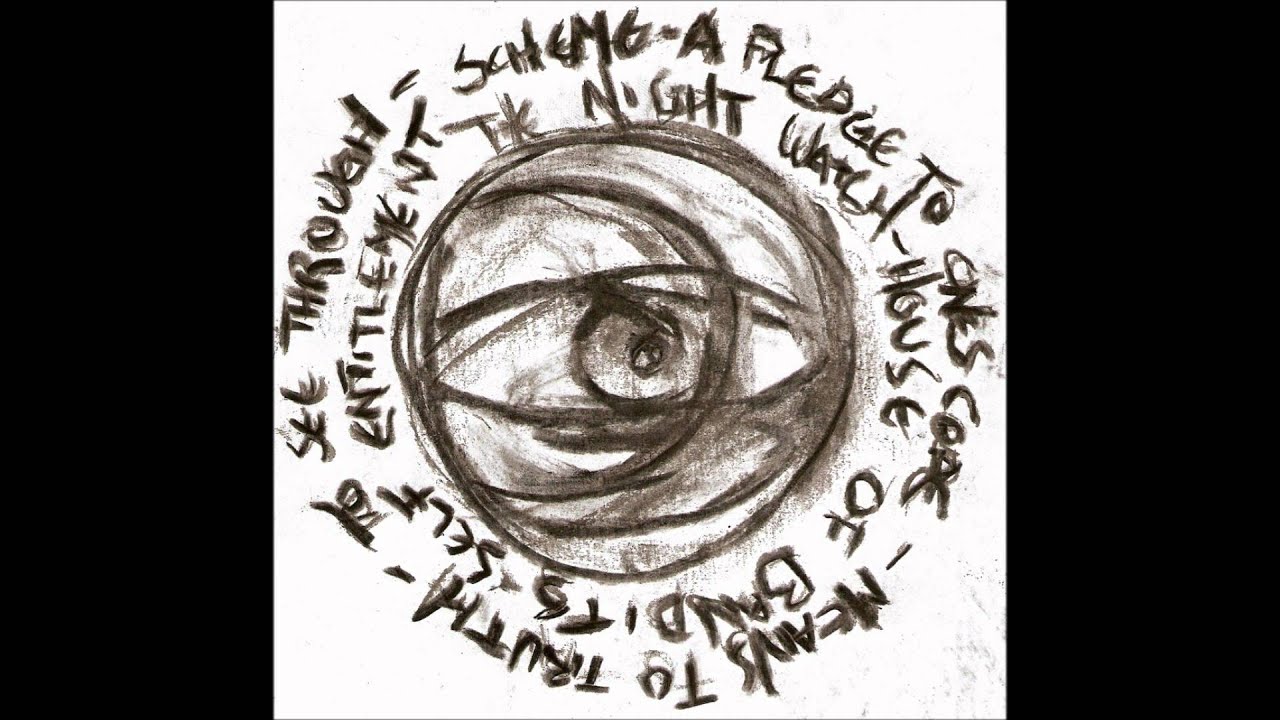 SCHEME - A PLEDGE TO ONES CODE - MEANS TO TRUTH - TO SEE THROUGH -
THE NIGHT WATCH - HOUSE OF BANDITS - SELF ENTITLEMENT